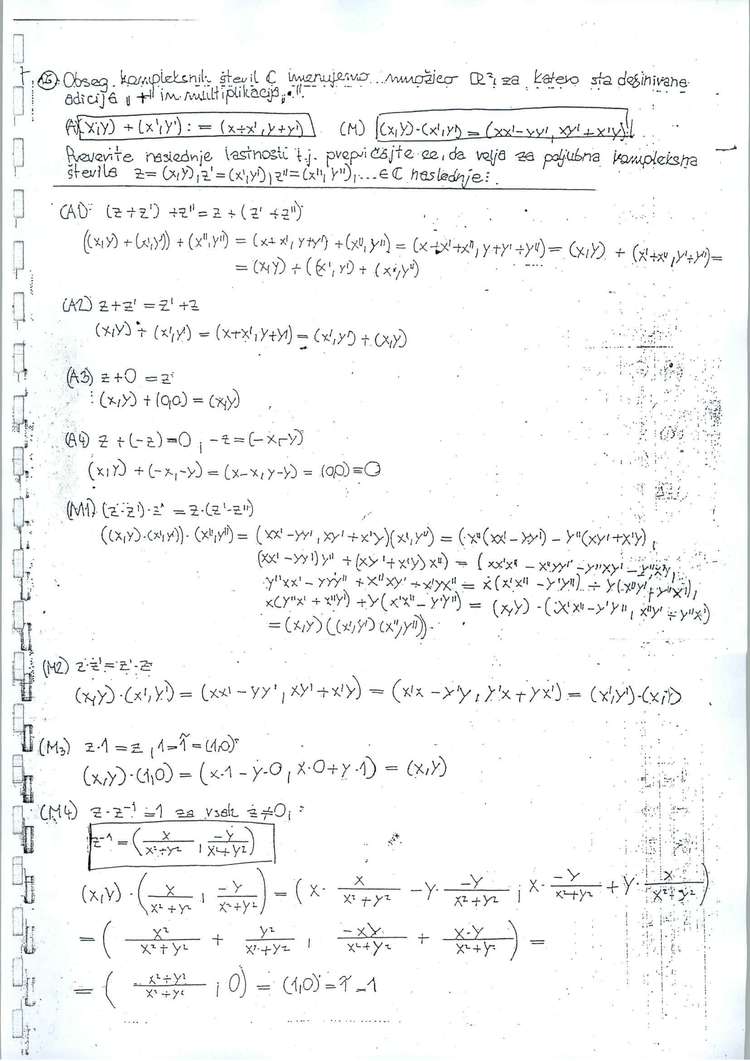 Obseg kompleksnih števil ℂ imenujemo množico ℝ², za katero sta definirane
adicija "+" in multiplikacija "·".
(A) (x,y) + (x',y') := (x+x', y+y') (M) (x,y)·(x',y') = (xx'-yy', xy'+x'y)
Preverite naslednje lastnosti t.j. prepričajte se, da velja za poljubna kompleksna
števila z=(x,y), z'=(x',y'), z''=(x'',y''),... ∈ ℂ naslednje:
(A1) (z+z')+z'' = z+(z'+z'')
((x,y)+(x',y'))+(x'',y'') = (x+x', y+y')+(x'',y'') = (x+x'+x'', y+y'+y'') = (x,y) + (x'+x'', y'+y'') =
= (x,y) + ((x',y') + (x'',y'')
(A2) z+z' = z'+z
(x,y) + (x',y') = (x+x', y+y') = (x',y') + (x,y)
(A3) z+0 = z
(x,y) + (0,0) = (x,y)
(A4) z+(-z)=0, -z=(-x,-y)
(x,y) + (-x,-y) = (x-x, y-y) = (0,0) = 0
(M1) (z·z')·z'' = z·(z'·z'')
((x,y)·(x',y'))·(x'',y'') = (xx'-yy', xy'+x'y)(x'',y'') = (x''(xx'-yy') - y''(xy'+x'y),
(xx'-yy')y'' + (xy'+x'y)x'') = (xx'x'' - x''yy' - y''xy' - y''x'y,
y''xx' - yy'y'' + x''xy' + x'yx'' = x(x'x''-y'y'') + y(x''y'+y''x'),
x(y''x'+x''y') + y(x'x''-y'y'') = (x,y)·(x'x''-y'y'', x''y'+y''x')
= (x,y)((x',y')(x'',y'')).
(M2) z·z' = z'·z
(x,y)·(x',y') = (xx'-yy', xy'+x'y) = (x'x-y'y, y'x+yx') = (x',y')·(x,y)
(M3) z·1 = z, 1=1̃=(1,0)
(x,y)·(1,0) = (x·1-y·0, x·0+y·1) = (x,y)
(M4) z·z⁻¹=1 za vsak z≠0,
z⁻¹ = (x/(x²+y²), -y/(x²+y²))
(x,y)·(x/(x²+y²), -y/(x²+y²)) = (x·x/(x²+y²) - y·-y/(x²+y²), x·-y/(x²+y²) + y·x/(x²+y²))
= (x²/(x²+y²) + y²/(x²+y²), -xy/(x²+y²) + x·y/(x²+y²)) =
= ((x²+y²)/(x²+y²), 0) = (1,0) = 1̃ = 1